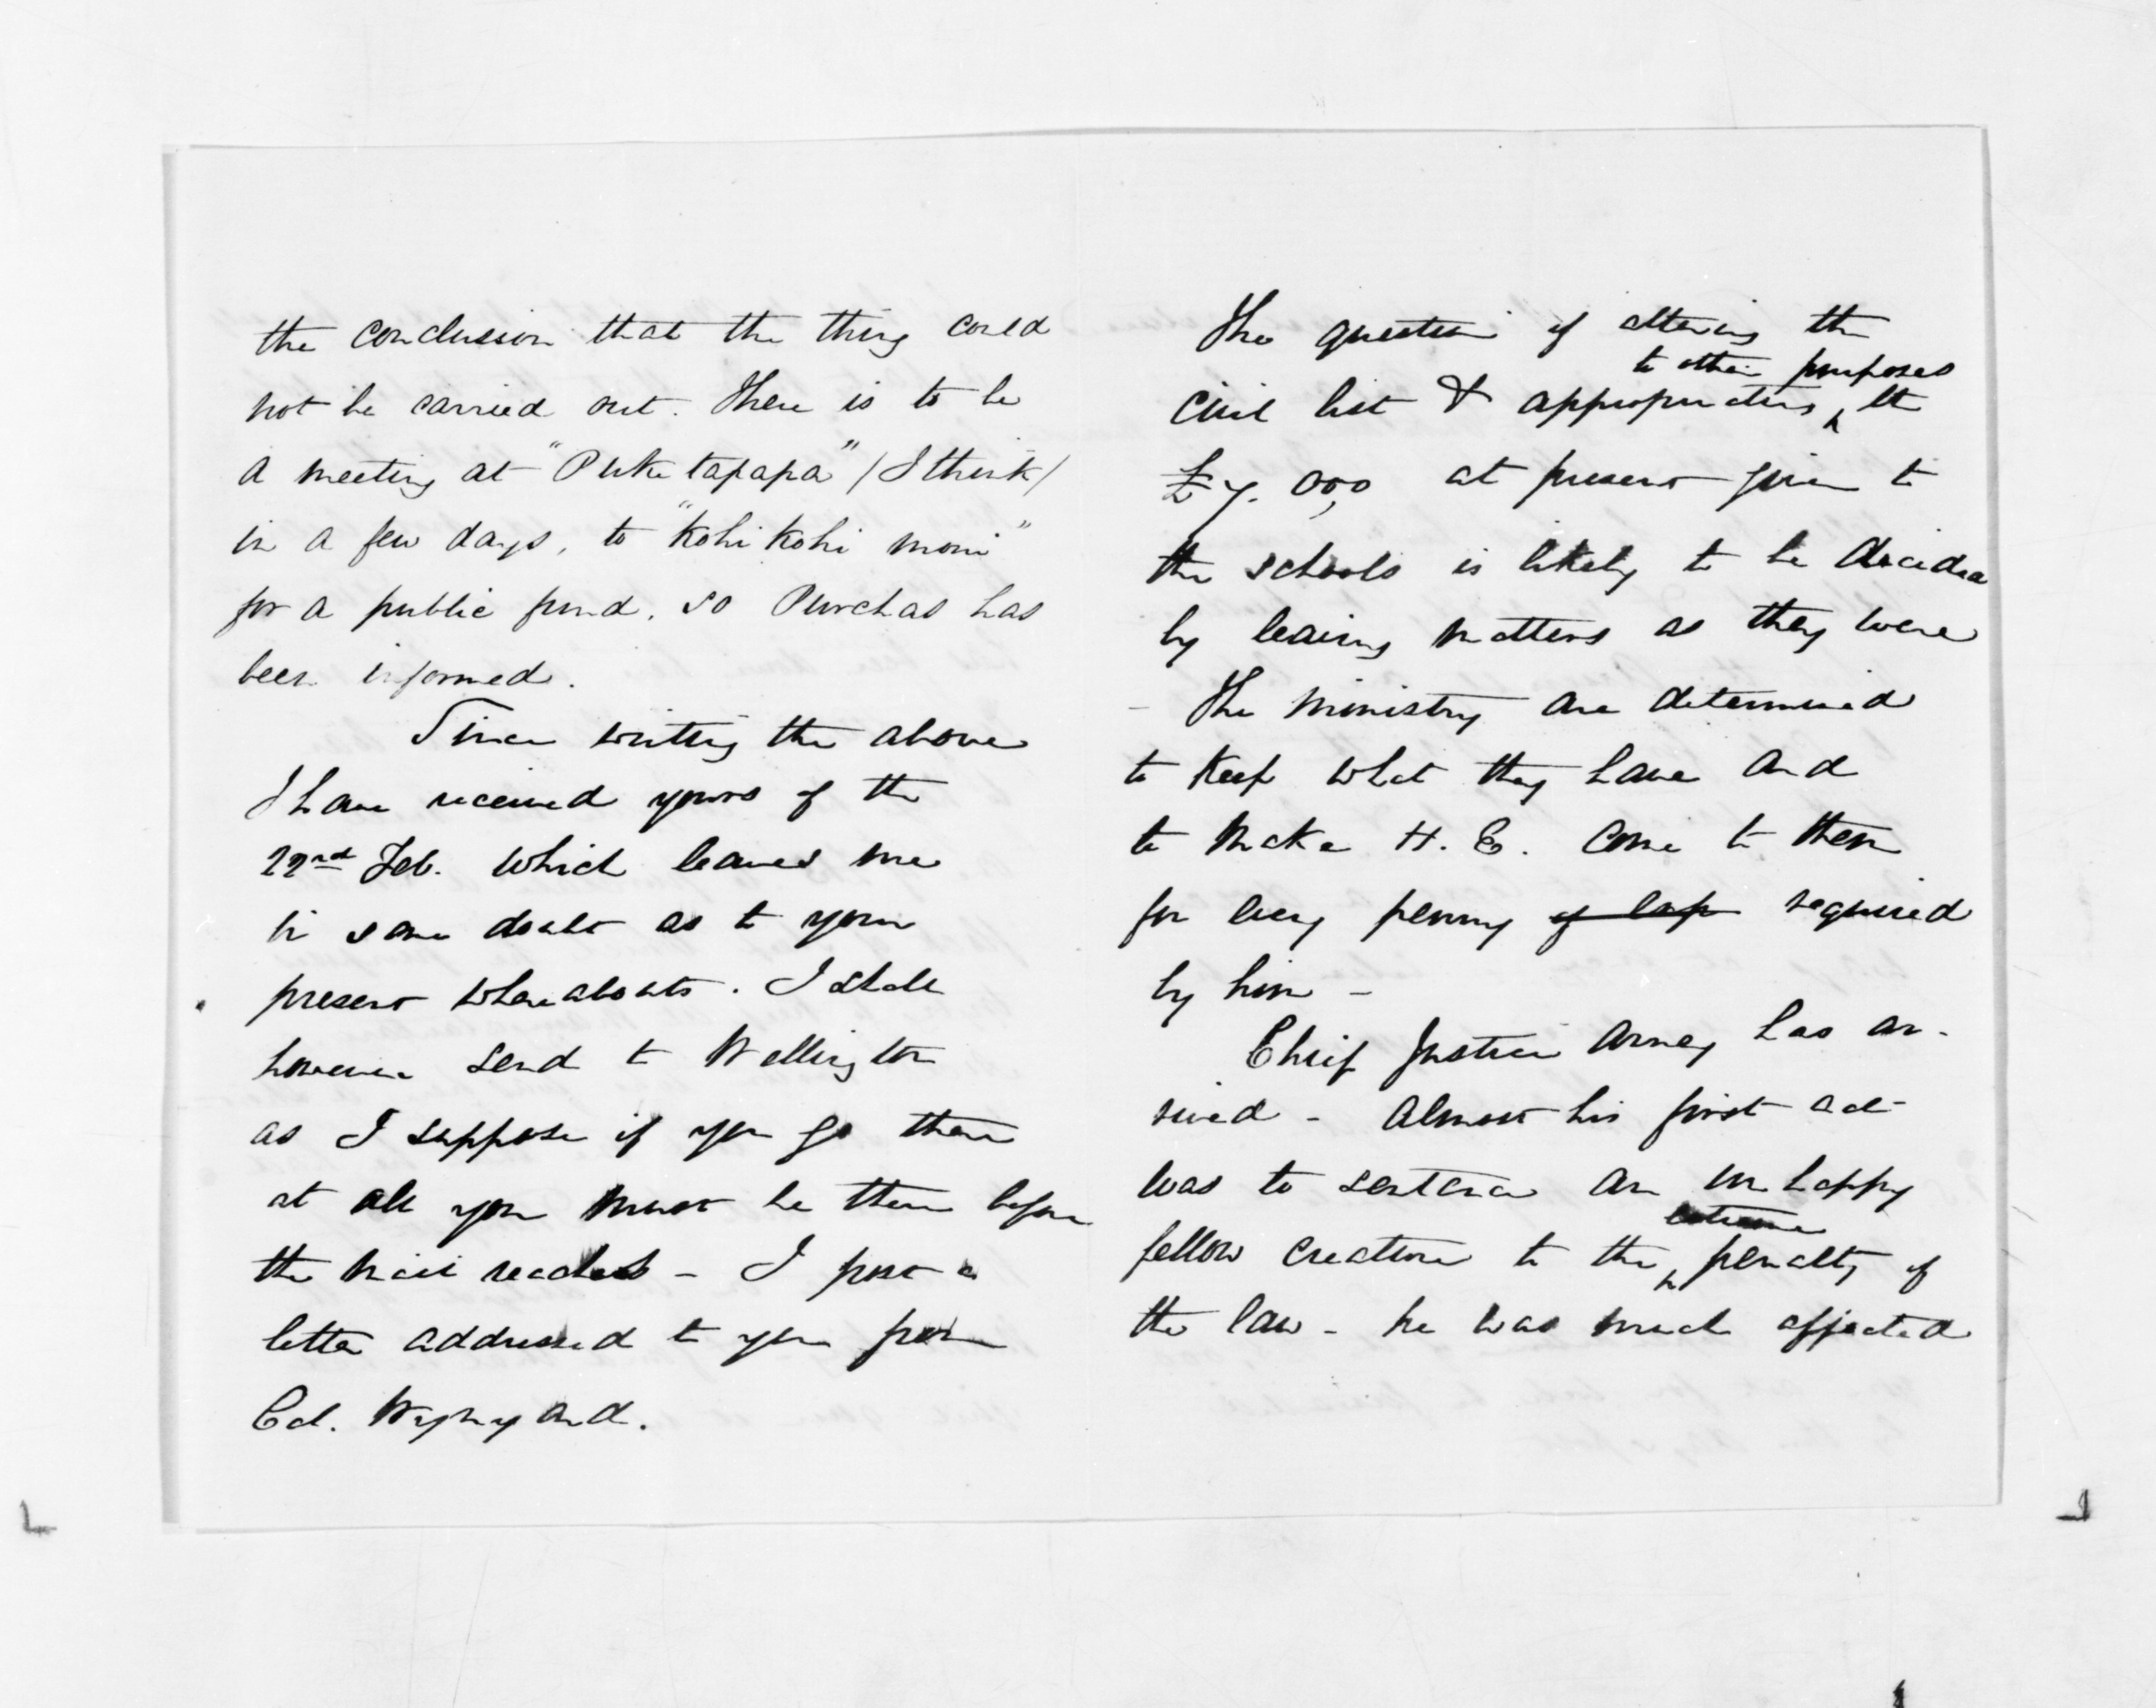 the conclusion that the thing could
not be carried out. There is to be
a meeting at "Puketapapa" /I think/
in a few days, to "Kohikohi moni"
for a public fund, so Purchas has
been informed.
Since writing the above
I have received yours of the
22nd Feb. which leaves me
in some doubt as to your
present whereabouts. I shall
however send to Wellington
as I suppose if you go there
at all you must be there before
the mail reaches - I post a
letter addressed to you from
Col. Wynyard.
The question of altering the
to other purposes
Civil list & appropriating the
£7,000 at present given to
the schools is likely to be decided
by leaving matters as they were
- The ministry are determined
to keep what they have and
to make H. E. come to them
for every penny of required
by him -
Chief Justice Arney has ar-
rived - almost his first act
was to sentence an unhappy
extreme
fellow creature to the penalty of
the law - he was much affected